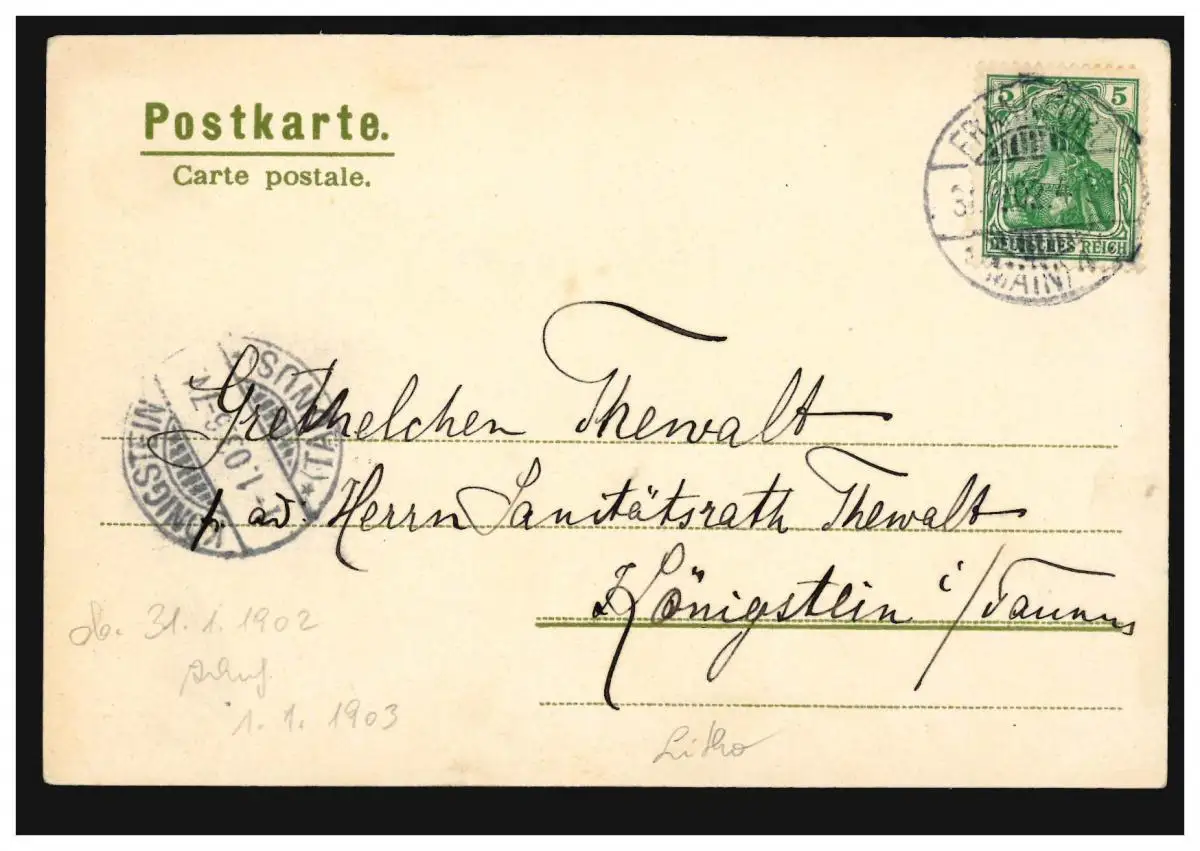 Postkarte.
Carte postale.
5 5
DEUTSCHES REICH
(MAIN)
KÖNIGSTEIN
(TAUNUS)
Grethelchen Thewalt
p. ad. Herrn Sanitätsrath Thewalt
Königstein i/Taunus
31. 1. 1902
1. 1. 1903
Litho